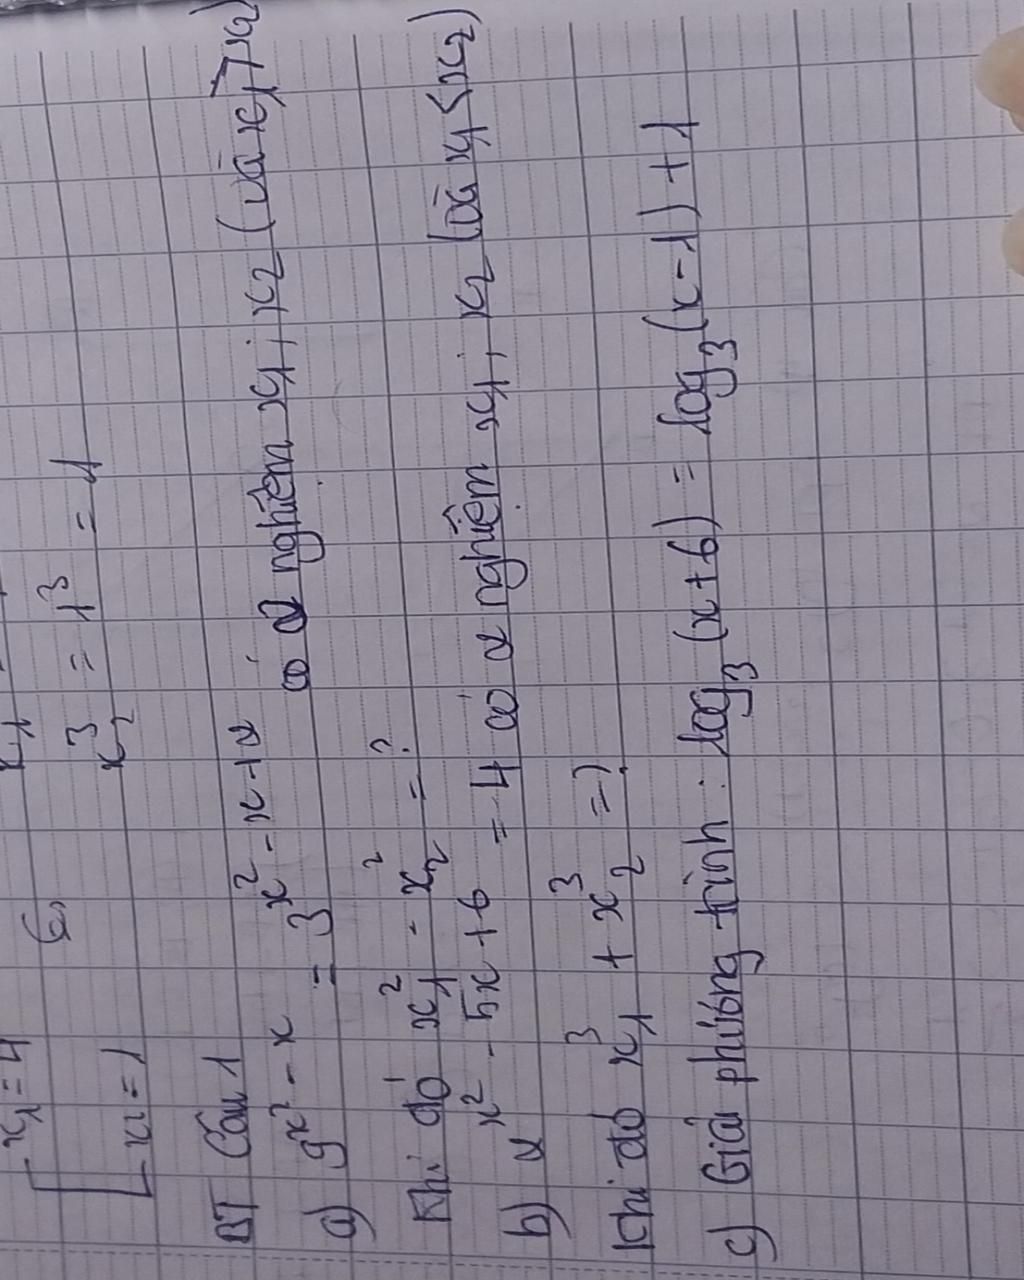 x₁ = 4
x₂³ = 1³ = 1
x₂ = 1
BT Câu 1
a) 9^(x² - x) = 3^(x² - x + 2) có 2 nghiệm x₁; x₂ (và x₁ > x₂)
Khi đó x₁² - x₂² = ?
b) 2^(x² - 5x + 6) = 4 có 2 nghiệm x₁; x₂ (và x₁ < x₂)
Khi đó x₁³ + x₂³ = ?
c) Giải phương trình: log₃(x+6) = log₃(x-1) + 1